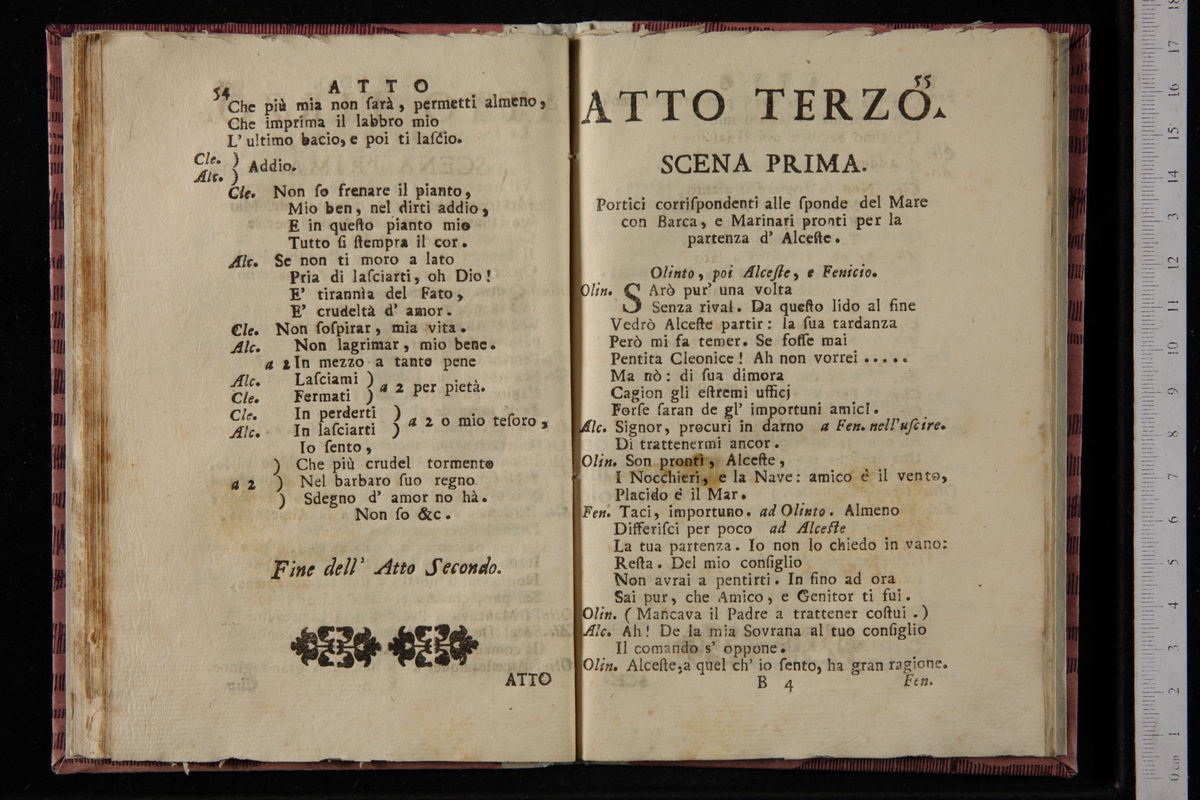 54 ATTO
Che più mia non ſarà, permetti almeno,
Che imprima il labbro mio
L' ultimo bacio, e poi ti laſcio.
Cle. )
Alc. ) Addio.
Cle. Non ſo frenare il pianto,
Mio ben, nel dirti addio,
E in queſto pianto mio
Tutto ſi ſtempra il cor.
Alc. Se non ti moro a lato
Pria di laſciarti, oh Dio!
E' tirannìa del Fato,
E' crudeltà d' amor.
Cle. Non ſoſpirar, mia vita.
Alc. Non lagrimar, mio bene.
a 2 In mezzo a tanto pene
Alc. Laſciami )
Cle. Fermati ) a 2 per pietà.
Cle. In perderti )
Alc. In laſciarti ) a 2 o mio teſoro,
Io ſento,
) Che più crudel tormento
a 2 ) Nel barbaro ſuo regno
) Sdegno d' amor no hà.
Non ſo &c.
Fine dell' Atto Secondo.
ATTO
55
ATTO TERZO.
SCENA PRIMA.
Portici corriſpondenti alle ſponde del Mare
con Barca, e Marinari pronti per la
partenza d' Alceſte.
Olinto, poi Alceſte, e Fenicio.
Olin. SArò pur' una volta
Senza rival. Da queſto lido al fine
Vedrò Alceſte partir: la ſua tardanza
Però mi fa temer. Se foſſe mai
Pentita Cleonice! Ah non vorrei .....
Ma nò: di ſua dimora
Cagion gli eſtremi ufficj
Forſe ſaran de gl' importuni amici.
Alc. Signor, procuri in darno a Fen. nell'uſcire.
Di trattenermi ancor.
Olin. Son pronti, Alceſte,
I Nocchieri, e la Nave: amico è il vento,
Placido é il Mar.
Fen. Taci, importuno. ad Olinto. Almeno
Differiſci per poco ad Alceſte
La tua partenza. Io non lo chiedo in vano:
Reſta. Del mio conſiglio
Non avrai a pentirti. In fino ad ora
Sai pur, che Amico, e Genitor ti fui.
Olin. (Mancava il Padre a trattener coſtui.)
Alc. Ah! De la mia Sovrana al tuo conſiglio
Il comando s' oppone.
Olin. Alceſte, a quel ch' io ſento, ha gran ragione.
B 4 Fen.